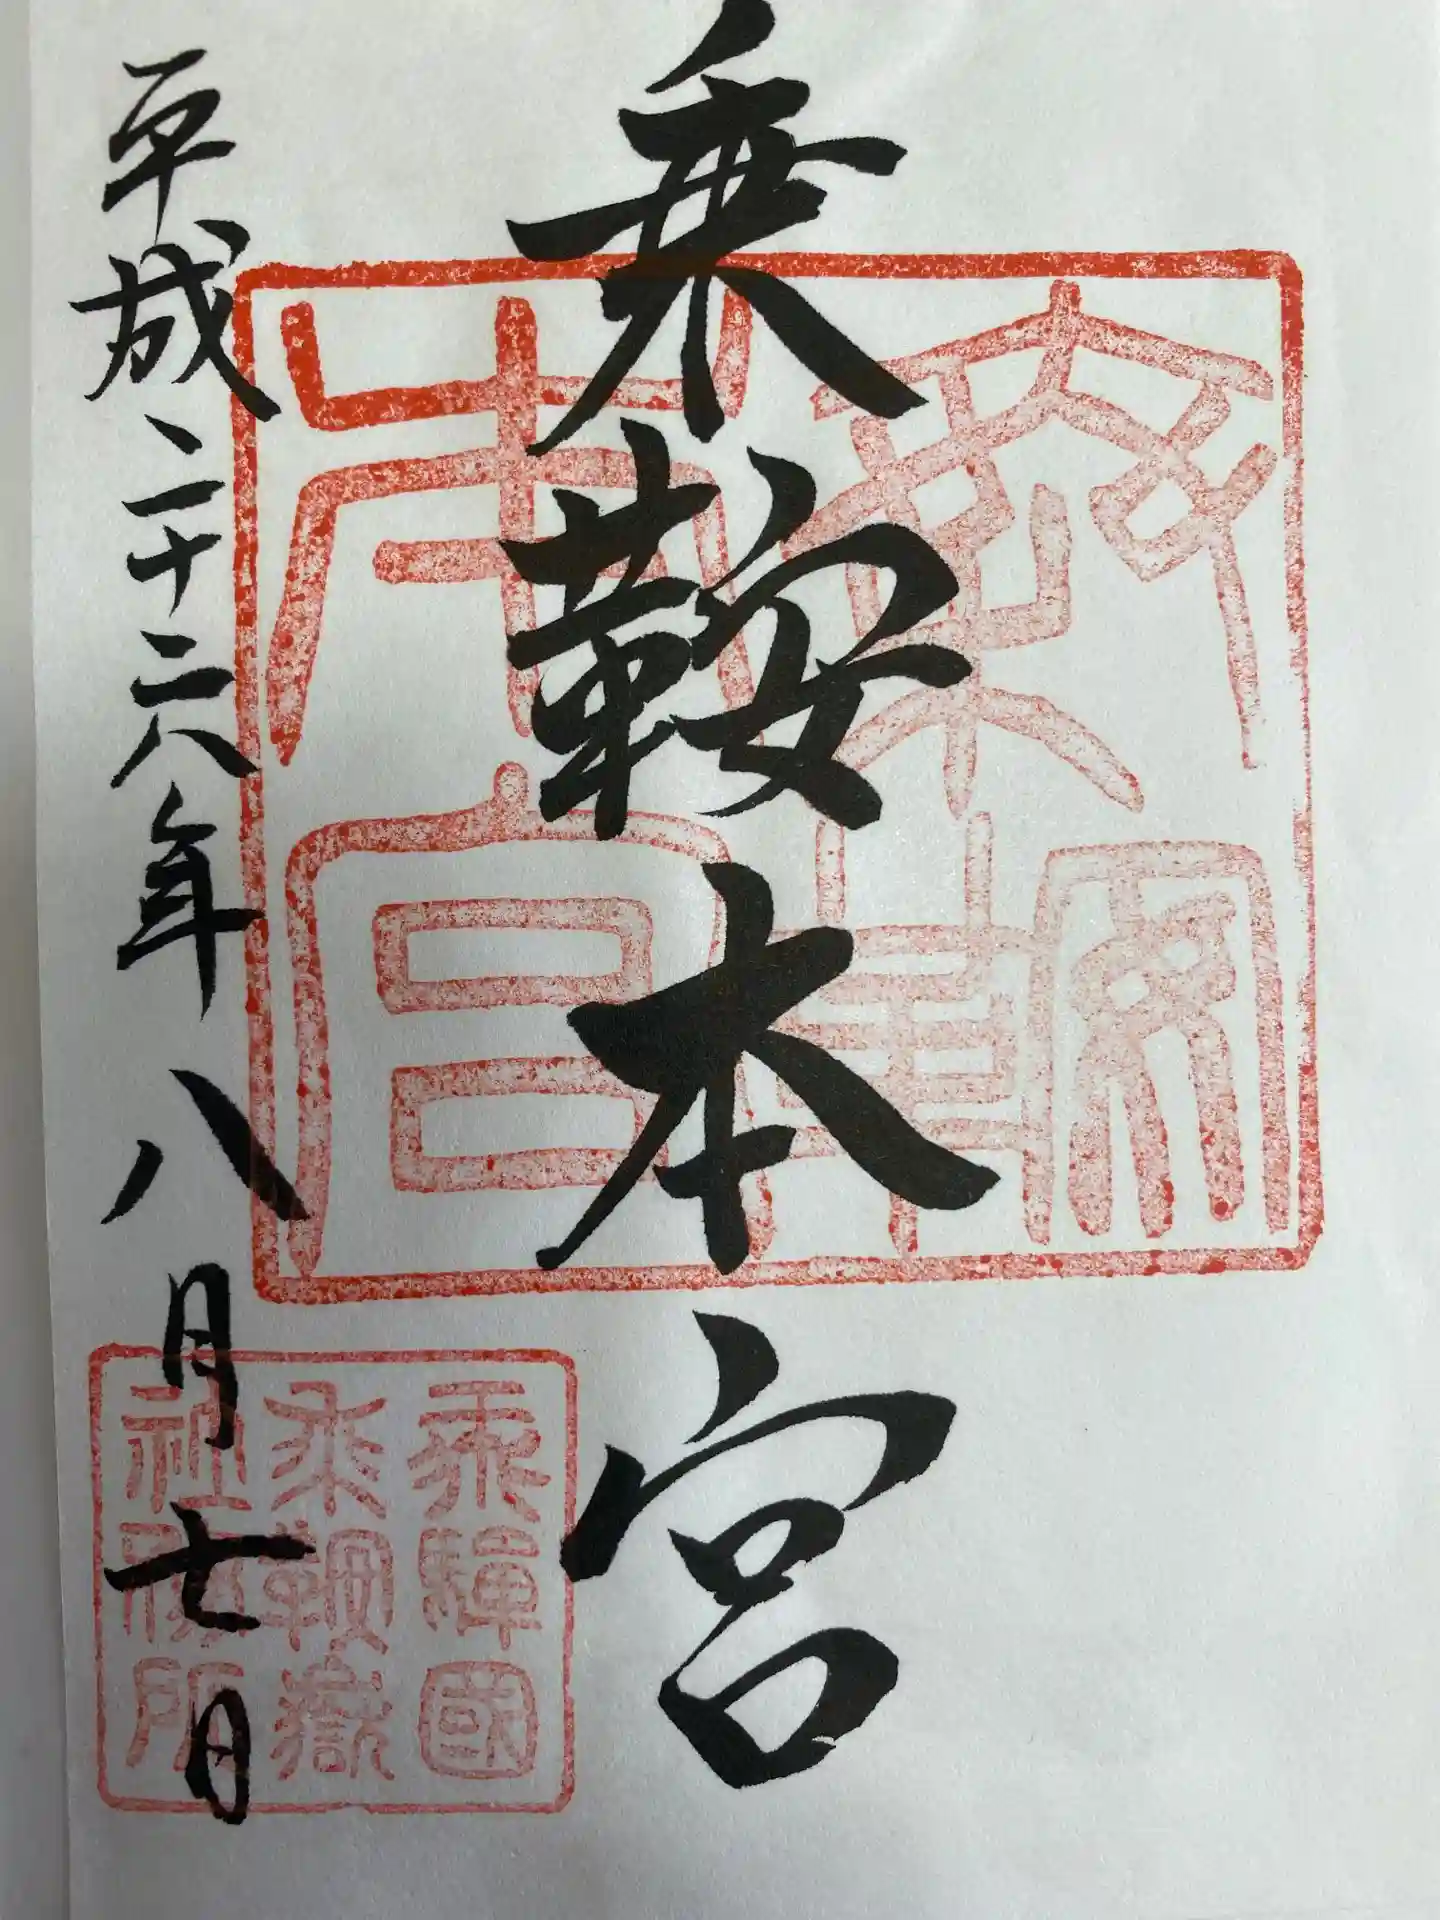 乗鞍本宮
平成二十六年八月七日
乗鞍本宮
飛驒國
乗鞍嶽
社務所